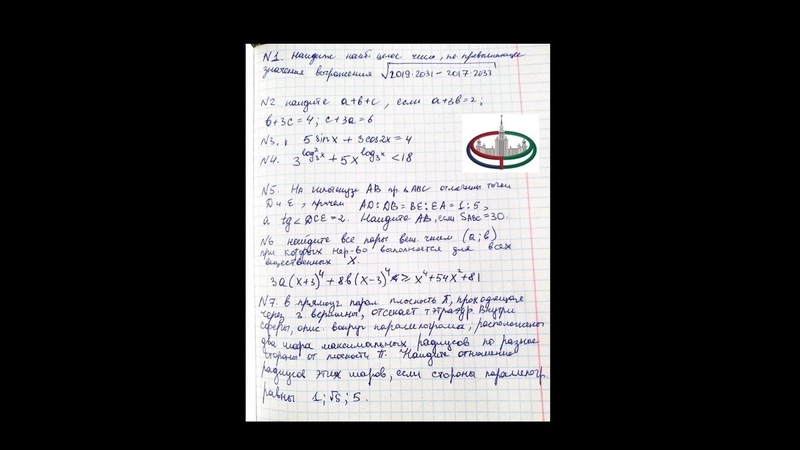 N1. Найдите наиб. целое число, не превышающее
значения выражения √2019·2031 − 2017·2033
N2 найдите a+b+c, если a+3b=2;
b+3c=4; c+3a=6
N3. 5 sinx + 3cos2x = 4
N4. 3^log₃²x + 5x^log₃x < 18
N5. На гипотенузе AB пр. Δ ABC отмечены точки
D и E, причем AD:DB = BE:EA = 1:5,
а tg∠DCE = 2. Найдите AB, если SABC = 30.
N6 найдите все пары вещ. чисел (a;b)
при которых нер-во выполняется для всех
вещественных x.
3a(x+3)⁴ + 8b(x−3)⁴ ≥ x⁴ + 54x² + 81
N7. В прямоуг парал. плоскость П, проходящая
через 3 вершины, отсекает тэтраэдр. Внутри
сферы, опис. вокруг параллелограма, расположены
два шара максимальных радиусов по разные
стороны от плоскости П. Найдите отношение
радиусов этих шаров, если стороны параллелогр.
равны 1; √5; 5.